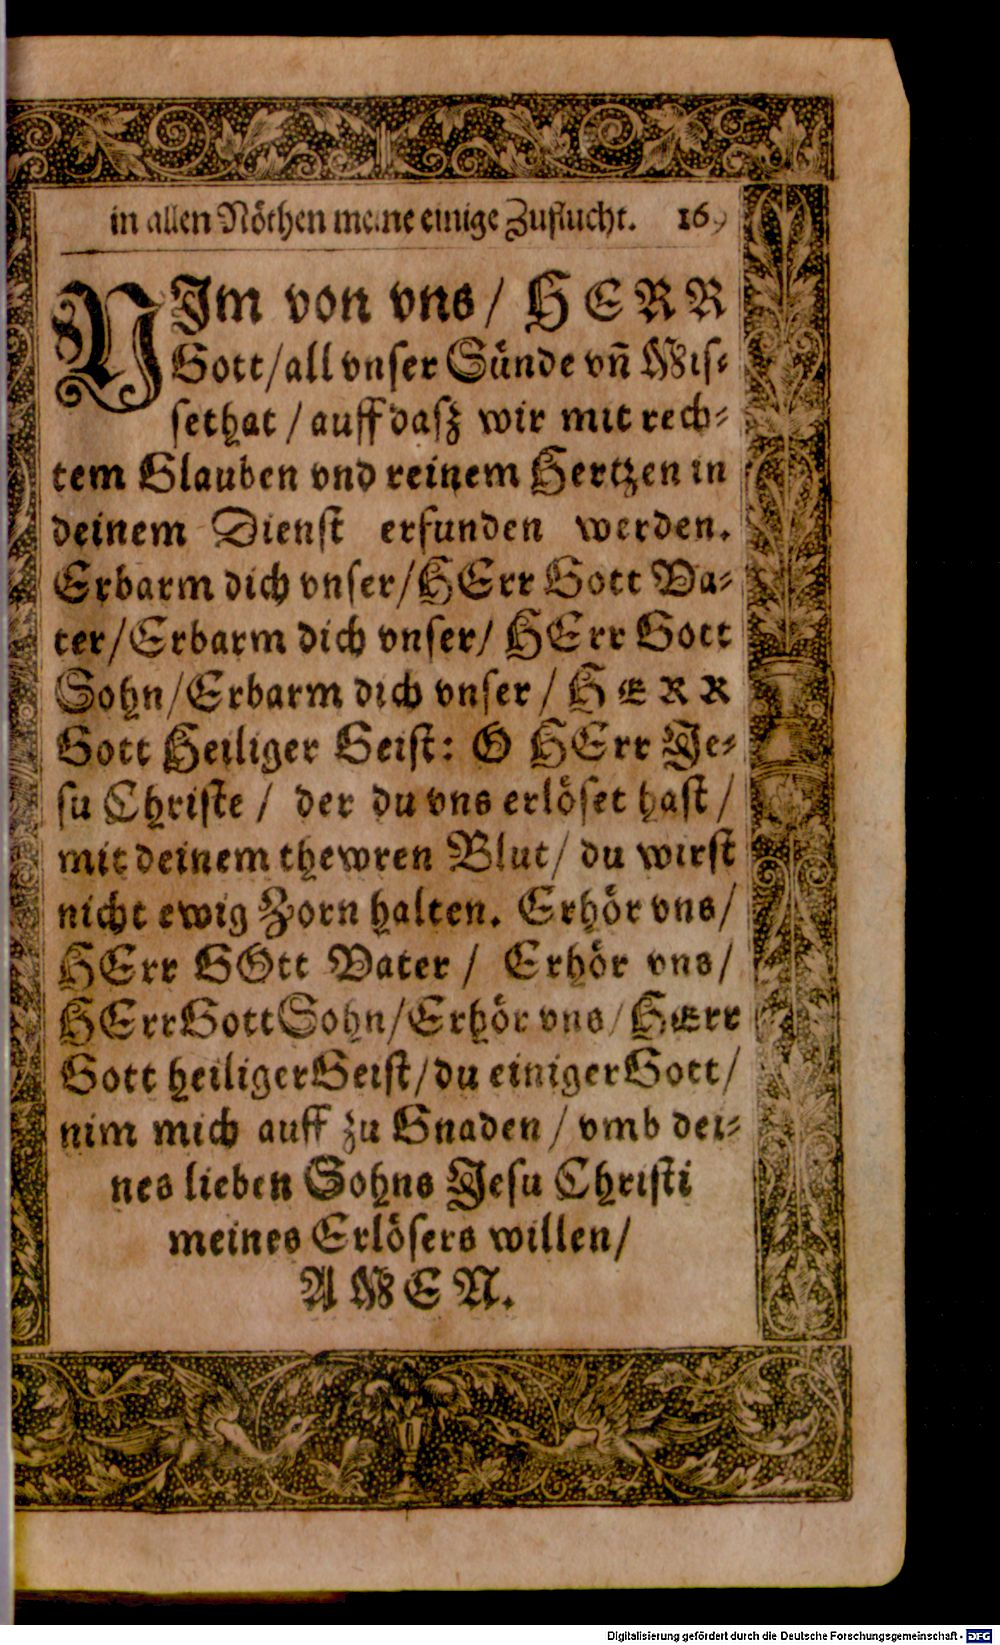 in allen Nöthen meine einige Zuflucht. 169
NIm von vns/ HERR
Gott/all vnser Sünde vñ Mis⸗
sethat / auff dasz wir mit rech⸗
tem Glauben vnd reinem Hertzen in
deinem Dienst erfunden werden.
Erbarm dich vnser/HErr Gott Va⸗
ter/Erbarm dich vnser/ HErr Gott
Sohn/Erbarm dich vnser / HERR
Gott Heiliger Geist: O HErr Je⸗
su Christe / der du vns erlöset hast /
mit deinem thewren Blut/ du wirst
nicht ewig Zorn halten. Erhör vns/
HErr GOtt Vater / Erhör vns/
HErr Gott Sohn/Erhör vns/HErr
Gott heiliger Geist/du einiger Gott/
nim mich auff zu Gnaden / vmb dei⸗
nes lieben Sohns Jesu Christi
meines Erlösers willen/
AMEN.
Digitalisierung gefördert durch die Deutsche Forschungsgemeinschaft - DFG